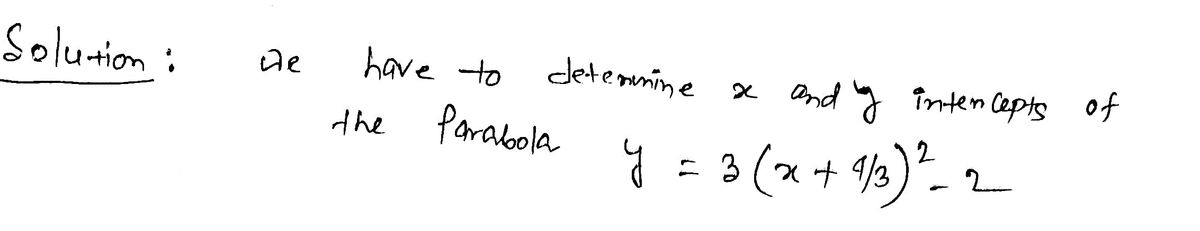 Solution : We have to determine x and y intercepts of
the Parabola y = 3(x + 4/3)² - 2